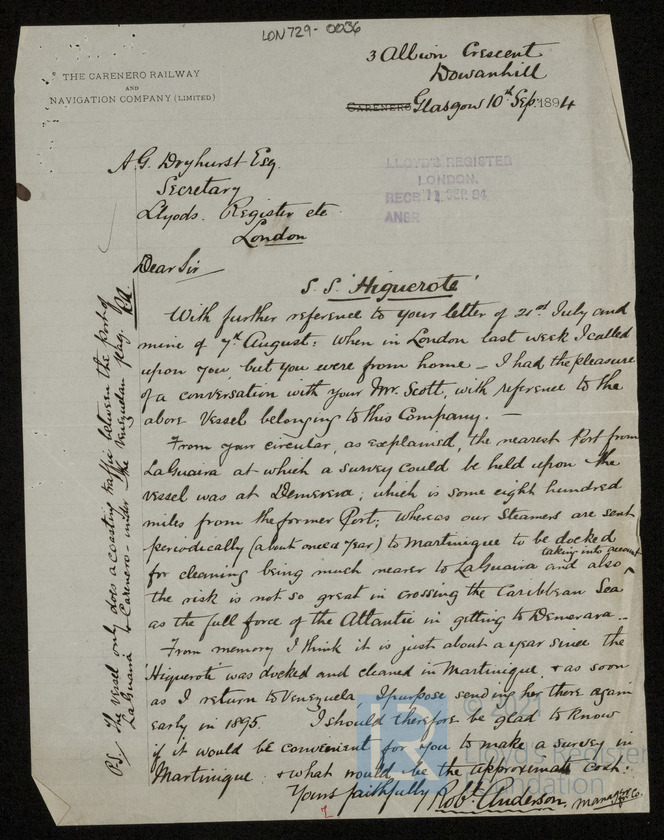 LON729-0036
THE CARENERO RAILWAY
AND
NAVIGATION COMPANY (LIMITED)
3 Albion Crescent
Dowanhill
CARENERO Glasgow 10th Sep. 1894
A. G. Dryhurst Esq.
Secretary
Llyods. Register etc
London
LLOYD'S REGISTER
LONDON.
RECD 11 SEP. 94
ANSR
Dear Sir
S. S. 'Higuerote'
With further reference to your letter of 21st July and
mine of 7th August: When in London last week I called
upon you, but you were from home – I had the pleasure
of a conversation with your Mr. Scott, with reference to the
above Vessel belonging to this Company. –
From your circular, as explained, the nearest Port from
LaGuaira at which a survey could be held upon the
vessel was at Demerera, which is some eight hundred
miles from the former Port; Whereas our Steamers are sent
periodically (about once a year) to Martinique to be docked
for cleaning being much nearer to LaGuaira and also taking into account
the risk is not so great in crossing the Caribbean Sea
as the full force of the Atlantic in getting to Demerara –
From memory I think it is just about a year since the
'Higuerote' was docked and cleaned in Martinique & as soon
as I return to Venezuela, I purpose sending her there again
early in 1895. I should therefore be glad to know
if it would be convenient for you to make a survey in
Martinique & what would be the approximate cost.
Yours faithfully
Robt. Anderson, manager
for Co.
PS/ The vessel only does a coasting traffic between the port of
LaGuaira & Carenero – under the Venezuelan flag. RA.
© 2021
Lloyd's Register
Foundation
LR